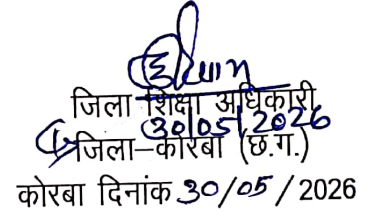 जिला शिक्षा अधिकारी
30/05/2026
जिला–कोरबा (छ.ग.)
कोरबा दिनांक 30/05/2026